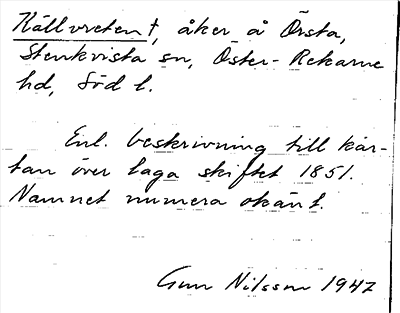 Källvreten †, åker å Örsta,
Stenkvista sn, Öster-Rekarne
hd, Söd l.
Enl. beskrivning till kar-
tan över laga skiftet 1851.
Namnet numera okänt.
Gun Nilsson 1947